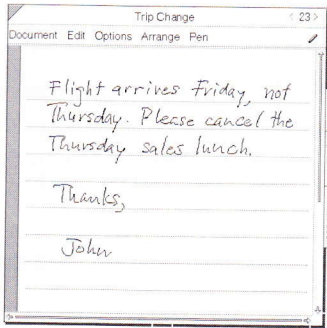 Trip Change < 23 >
Document Edit Options Arrange Pen
Flight arrives Friday, not
Thursday. Please cancel the
Thursday sales lunch.
Thanks,
John